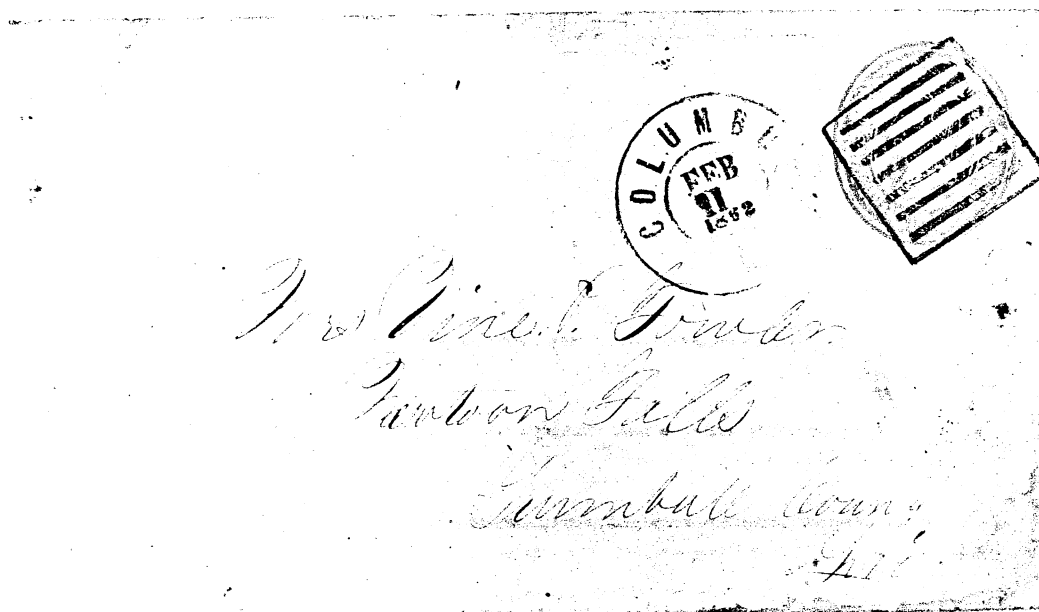 COLUMBU
FEB
21
1862
Mrs Gowan
Newtoon Falls
Trumbull Coun